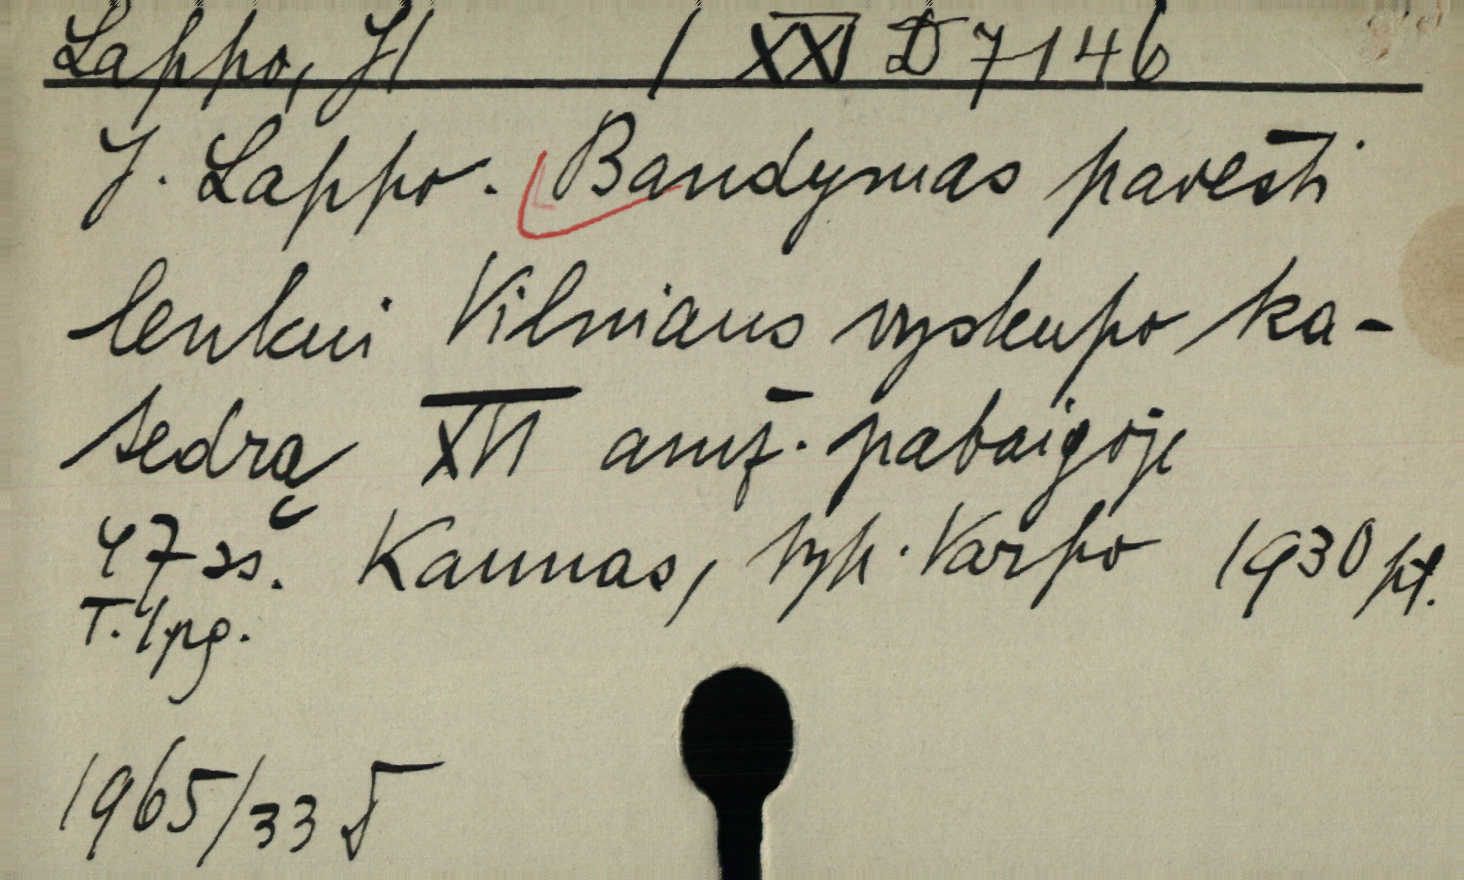 Lappo, J| / XXI D 7146
J. Lappo. Bandymas pavesti
lenkui Vilniaus vyskupo ka-
tedrą XVI amž. pabaigoje
47 ss. Kaunas, typ. Varpo 1930 pł.
T. 1 pg.
1965/33